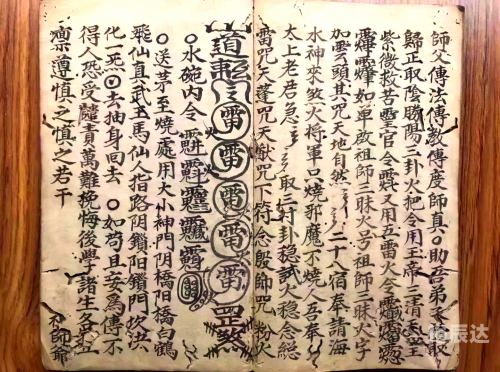 師父傳法傳教傳度師真〇助吾弟子取
歸正取陰賜陽三封火把令用玉帝三清天主
紫微救苦灵官令又用五雷火令
如单啟祖師三昧火号祖師三昧火字
加雪頭其咒天地自然二十八宿奉請海
水神來煞火将軍口燒邪魔不燒人吾奉
太上老君急取三封卦穩試火穩念総
雷咒天蓬咒天猷咒下符念殷師咒粉火
道 雷雷雷雷雷 罡煞
〇水碗内令
〇送茅至燒處用大小神門阴橋阳橋白鶴
飛仙真武玉馬仙人指路阴鎖阳鎖門
化一炁〇去抽身回去〇如苟且妄為傳不
得人恐受譴責萬難挽悔後學諸生各宜
凛遵慎之慎之若干
祖師爺
辰达